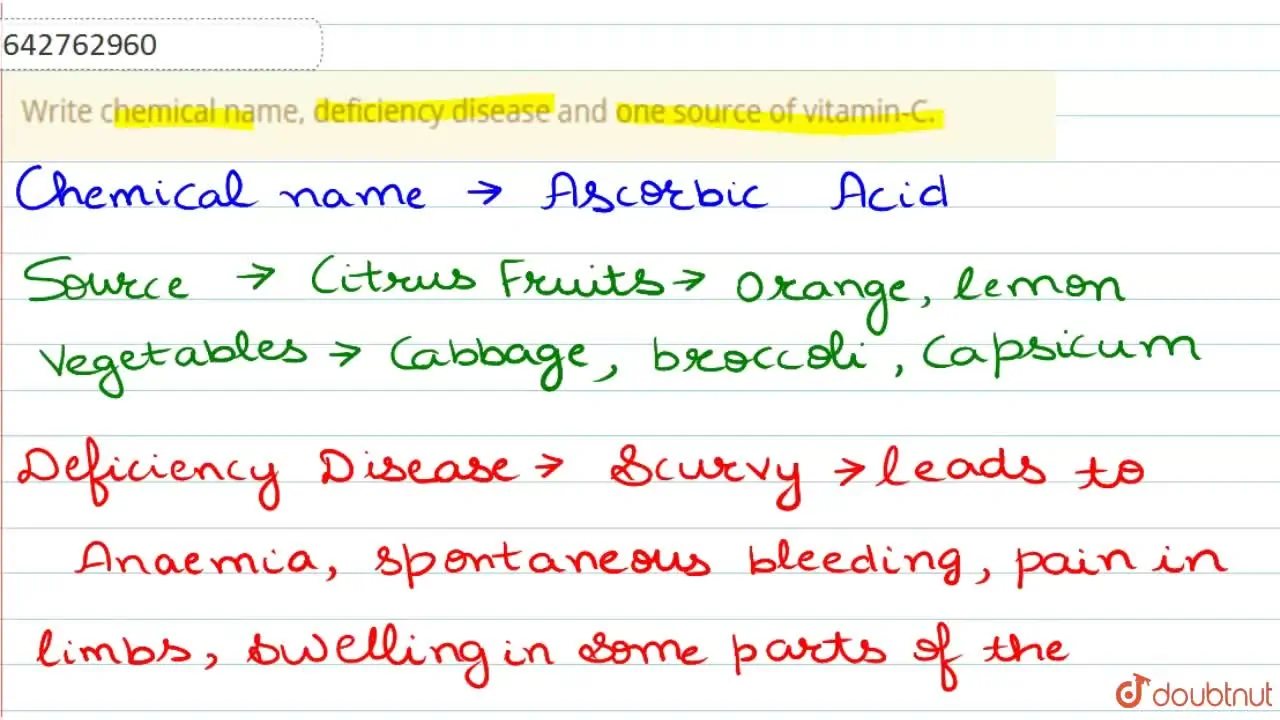 642762960
Write chemical name, deficiency disease and one source of vitamin-C.
Chemical name → Ascorbic Acid
Source → Citrus Fruits → orange, lemon
Vegetables → Cabbage, broccoli, Capsicum
Deficiency Disease → Scurvy → leads to
Anaemia, spontaneous bleeding, pain in
limbs, swelling in some parts of the
doubtnut